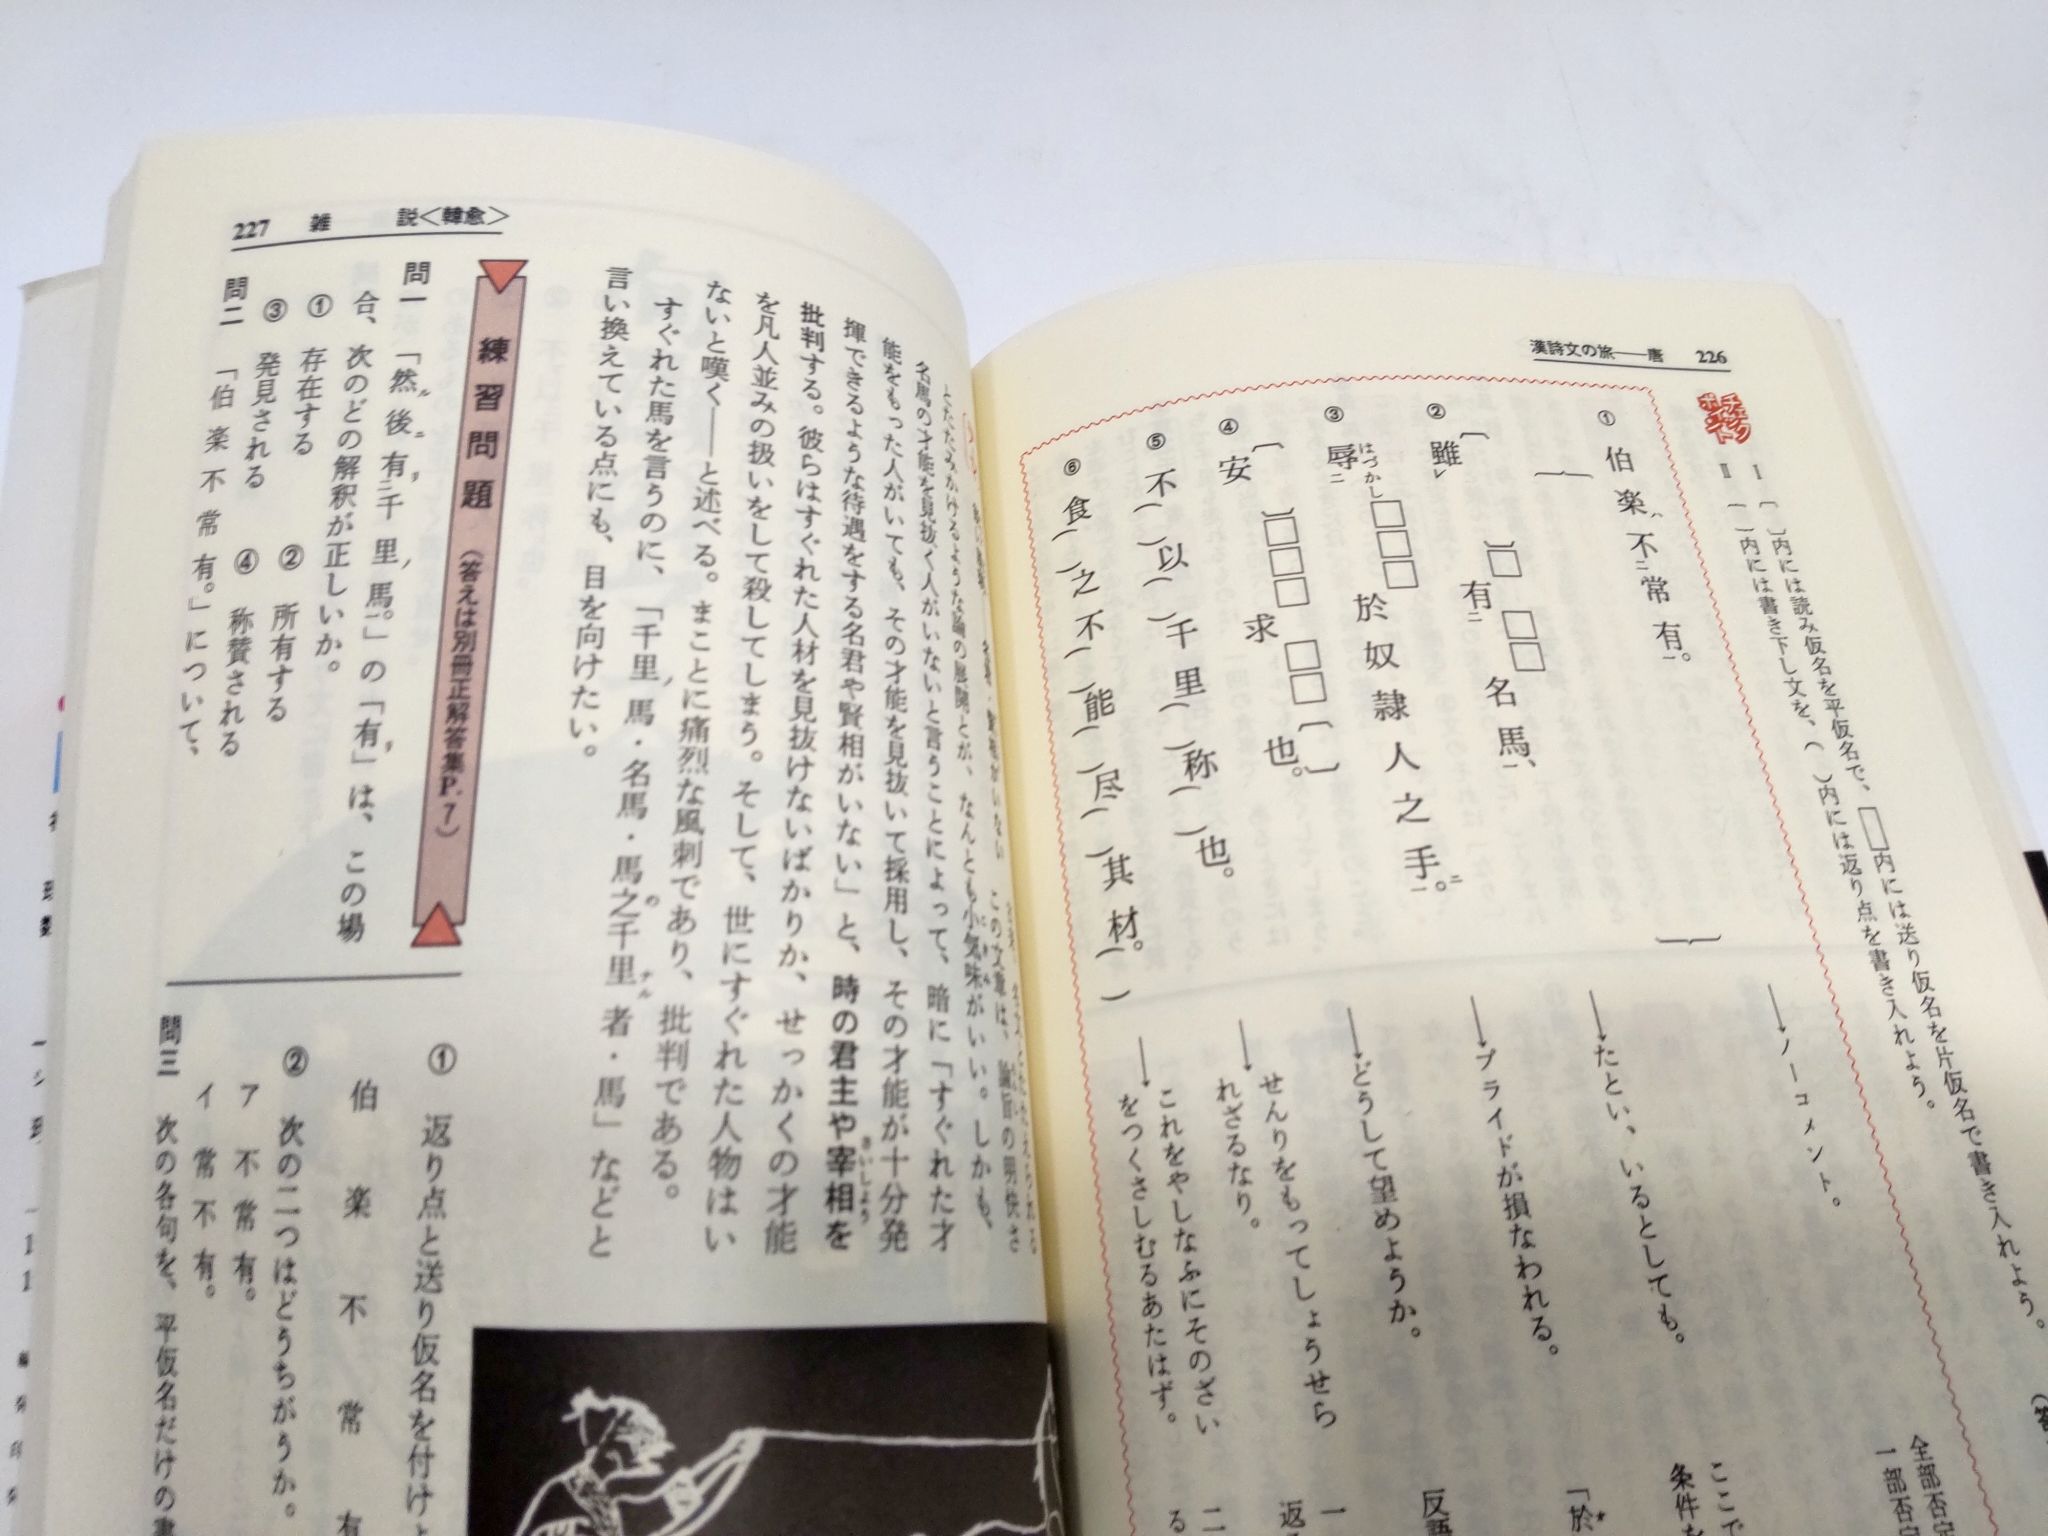 漢詩文の旅──唐 226
チェックポイント
Ⅰ 〔 〕内には読み仮名を平仮名で、□内には送り仮名を片仮名で書き入れよう。
Ⅱ （ ）内には書き下し文を、（ ）内には返り点を書き入れよう。
① 伯楽ハ不二常有一。
→ノーコメント。
② 雖レ〔 〕□有二□□名馬一、
→たとい、いるとしても。
③ 辱二はづかし□□□於奴隷人之手一。ニ
→プライドが損なわれる。
④ 安〔 〕□□□求□□也。〔 〕
→どうして望めようか。
⑤ 不（ ）以（ ）千里（ ）称（ ）也。
→せんりをもってしょうせら
れざるなり。
⑥ 食（ ）之不（ ）能（ ）尽（ ）其材。（ ）
→これをやしなふにそのざい
をつくさしむるあたはず。
全部否定
一部否定
ここで
条件を
「於*
反語
一
返
二
る
227 雑 説＜韓愈＞
名馬の才能を見抜く人がいないと言うことによって、暗に「すぐれた才
能をもった人がいても、その才能を見抜いて採用し、その才能が十分発
揮できるような待遇をする名君や賢相がいない」と、時の君主や宰相を
さいしょう
批判する。彼らはすぐれた人材を見抜けないばかりか、せっかくの才能
を凡人並みの扱いをして殺してしまう。そして、世にすぐれた人物はい
ないと嘆く──と述べる。まことに痛烈な風刺であり、批判である。
すぐれた馬を言うのに、「千里ノ馬・名馬・馬之ノ千里ナル者・馬」などと
言い換えている点にも、目を向けたい。
練習問題 （答えは別冊正解答集P.7）
問一 「然ル後ニ有二千里ノ馬一。」の「有」は、この場
合、次のどの解釈が正しいか。
① 存在する ② 所有する
③ 発見される ④ 称賛される
問二 「伯楽不常有。」について、
① 返り点と送り仮名を付けよ
伯楽不常有
② 次の二つはどうちがうか。
ア 不常有。
イ 常不有。
問三 次の各句を、平仮名だけの書